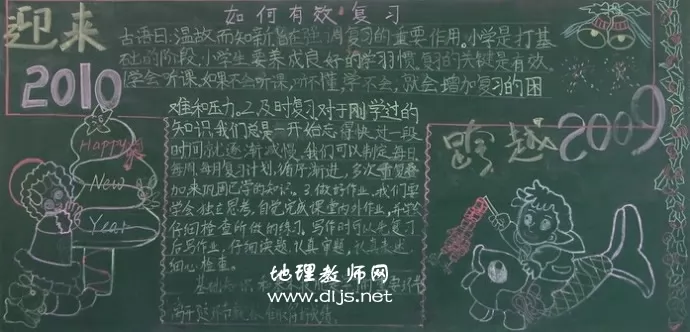 迎来
2010
如何有效复习
古语曰:温故而知新,旨在强调复习的重要作用。小学是打基
础的阶段,小学生要养成良好的学习惯,复习的关键是有效
1学会听课,如果不会听课,听不懂,学不会,就会增加复习的困
难和压力。2.及时复习对于刚学过的
知识,我们总是一开始忘得快,过一段
时间就逐渐减慢。我们可以制定每日
每周,每月复习计划,循序渐进,多次重复叠
加来巩固已学的知识。3.做好作业,我们要
学会独立思考,自觉完成课堂内外作业,并
仔细检查所做的练习,写作时可以先复习
后写作业,仔细读题,认真审题,认真表述
细心检查。
基础知识
Happy
New
Year
跨越2009
地理教师网
www.dljs.net